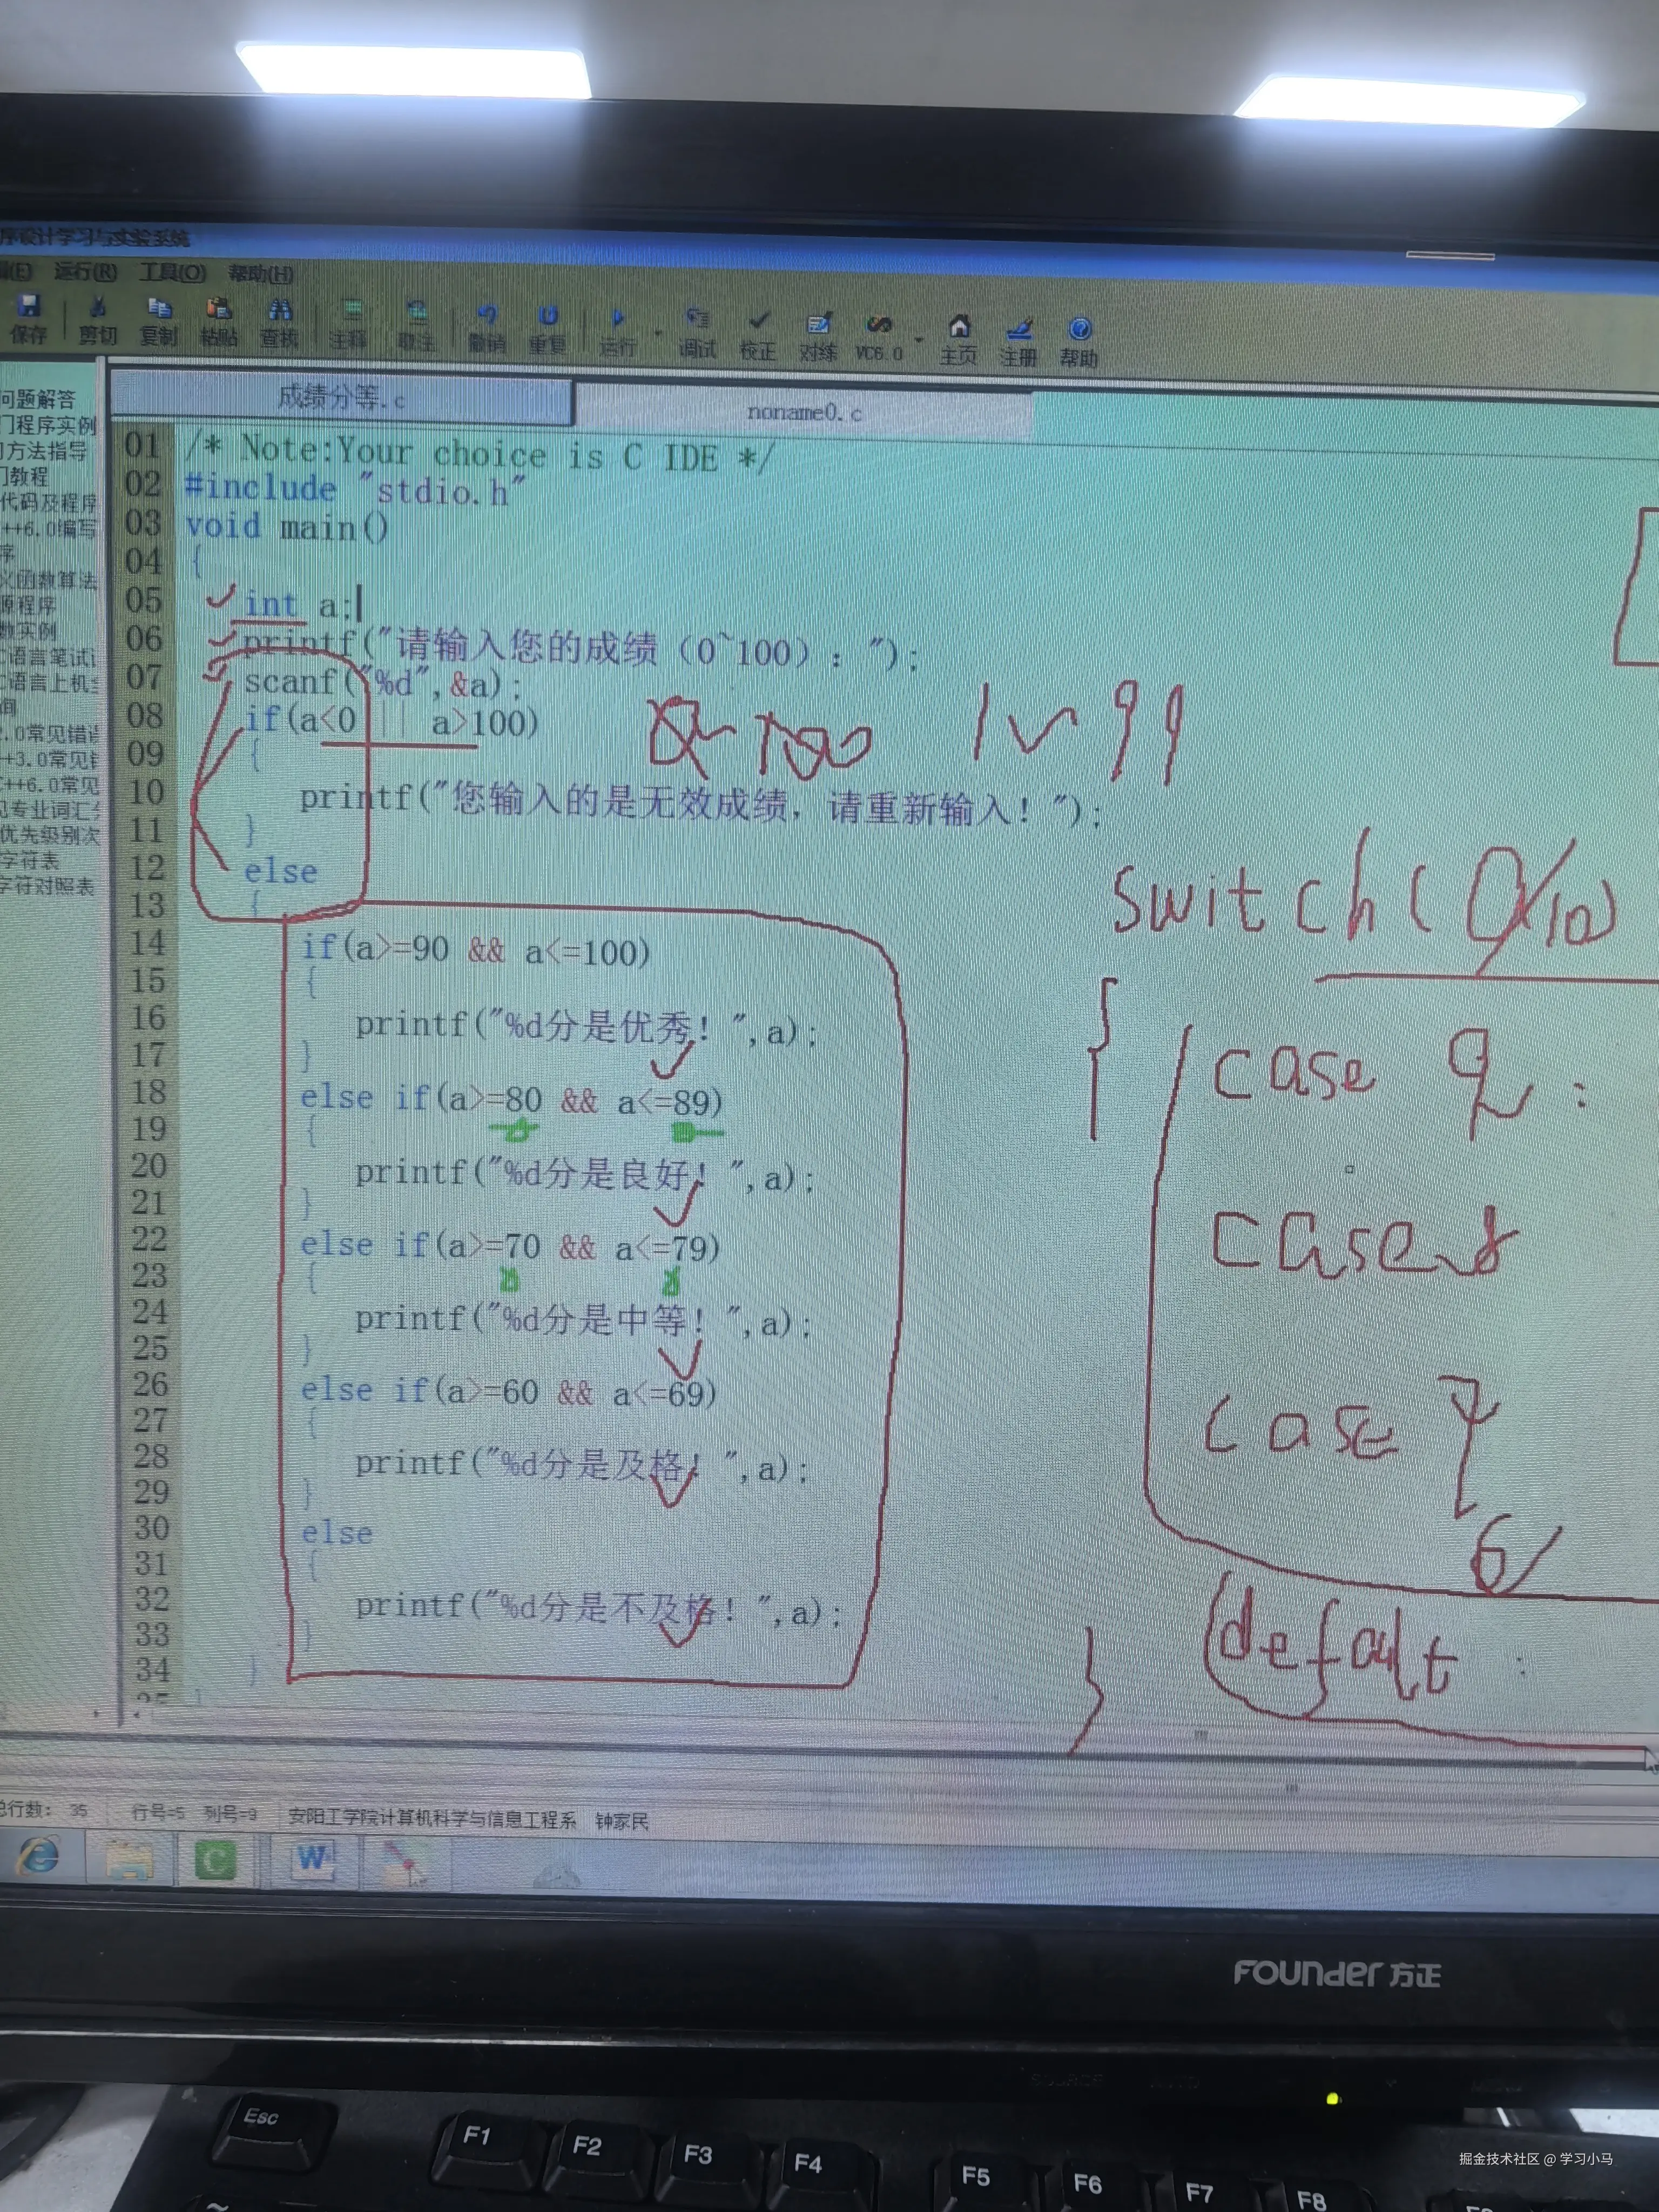 序设计学习与实验系统
辑(E) 运行(R) 工具(O) 帮助(H)
保存 剪切 复制 粘贴 查找 注释 取注 撤销 重复 运行 调试 校正 对练 VC6.0 主页 注册 帮助
问题解答
门程序实例
方法指导
门教程
代码及程序
++6.0编写
序
义函数算法
源程序
数实例
语言笔试
语言上机
询
.0常见错误
++3.0常见
++6.0常见
见专业词汇
优先级别次
字符表
字符对照表
成绩分等.c noname0.c
01 /* Note:Your choice is C IDE */
02 #include "stdio.h"
03 void main()
04 {
05 int a;
06 printf("请输入您的成绩（0~100）：");
07 scanf("%d",&a);
08 if(a<0 || a>100)
09 {
10 printf("您输入的是无效成绩，请重新输入！");
11 }
12 else
13 {
14 if(a>=90 && a<=100)
15 {
16 printf("%d分是优秀！",a);
17 }
18 else if(a>=80 && a<=89)
19 {
20 printf("%d分是良好！",a);
21 }
22 else if(a>=70 && a<=79)
23 {
24 printf("%d分是中等！",a);
25 }
26 else if(a>=60 && a<=69)
27 {
28 printf("%d分是及格！",a);
29 }
30 else
31 {
32 printf("%d分是不及格！",a);
33 }
34 }
35 }
0~100 1~99
switch(a/10)
{
case 9:
case 8
case 7
6
defalt:
}
总行数: 35 行号=5 列号=9 安阳工学院计算机科学与信息工程系 钟家民
FOUNDER 方正
Esc F1 F2 F3 F4 F5 F6 F7 F8
掘金技术社区 @ 学习小马